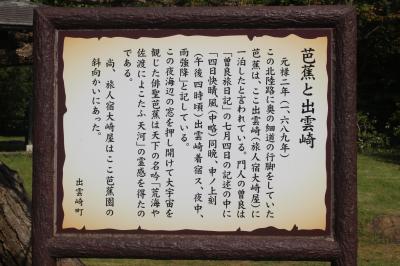 芭蕉と出雲崎
元禄二年(一、六八九年)
この北陸路に奥の細道の行脚をしていた
芭蕉は、ここ出雲崎(旅人宿大崎屋)に
一泊したと言われている。門人の曽良は
「曽良旅日記」の七月四日の記述の中に
「四日快晴、風(中略)同晩、申ノ上刻
(午後四時頃)出雲崎着宿ス、夜中、
雨強降」と記している。
この夜海辺の窓を押し開けて大宇宙を
観じた俳聖芭蕉は天下の名吟「荒海や
佐渡によこたふ天河」の霊感を得たの
である。
尚、旅人宿大崎屋はここ芭蕉園の
斜向かいにあった。
出雲崎町